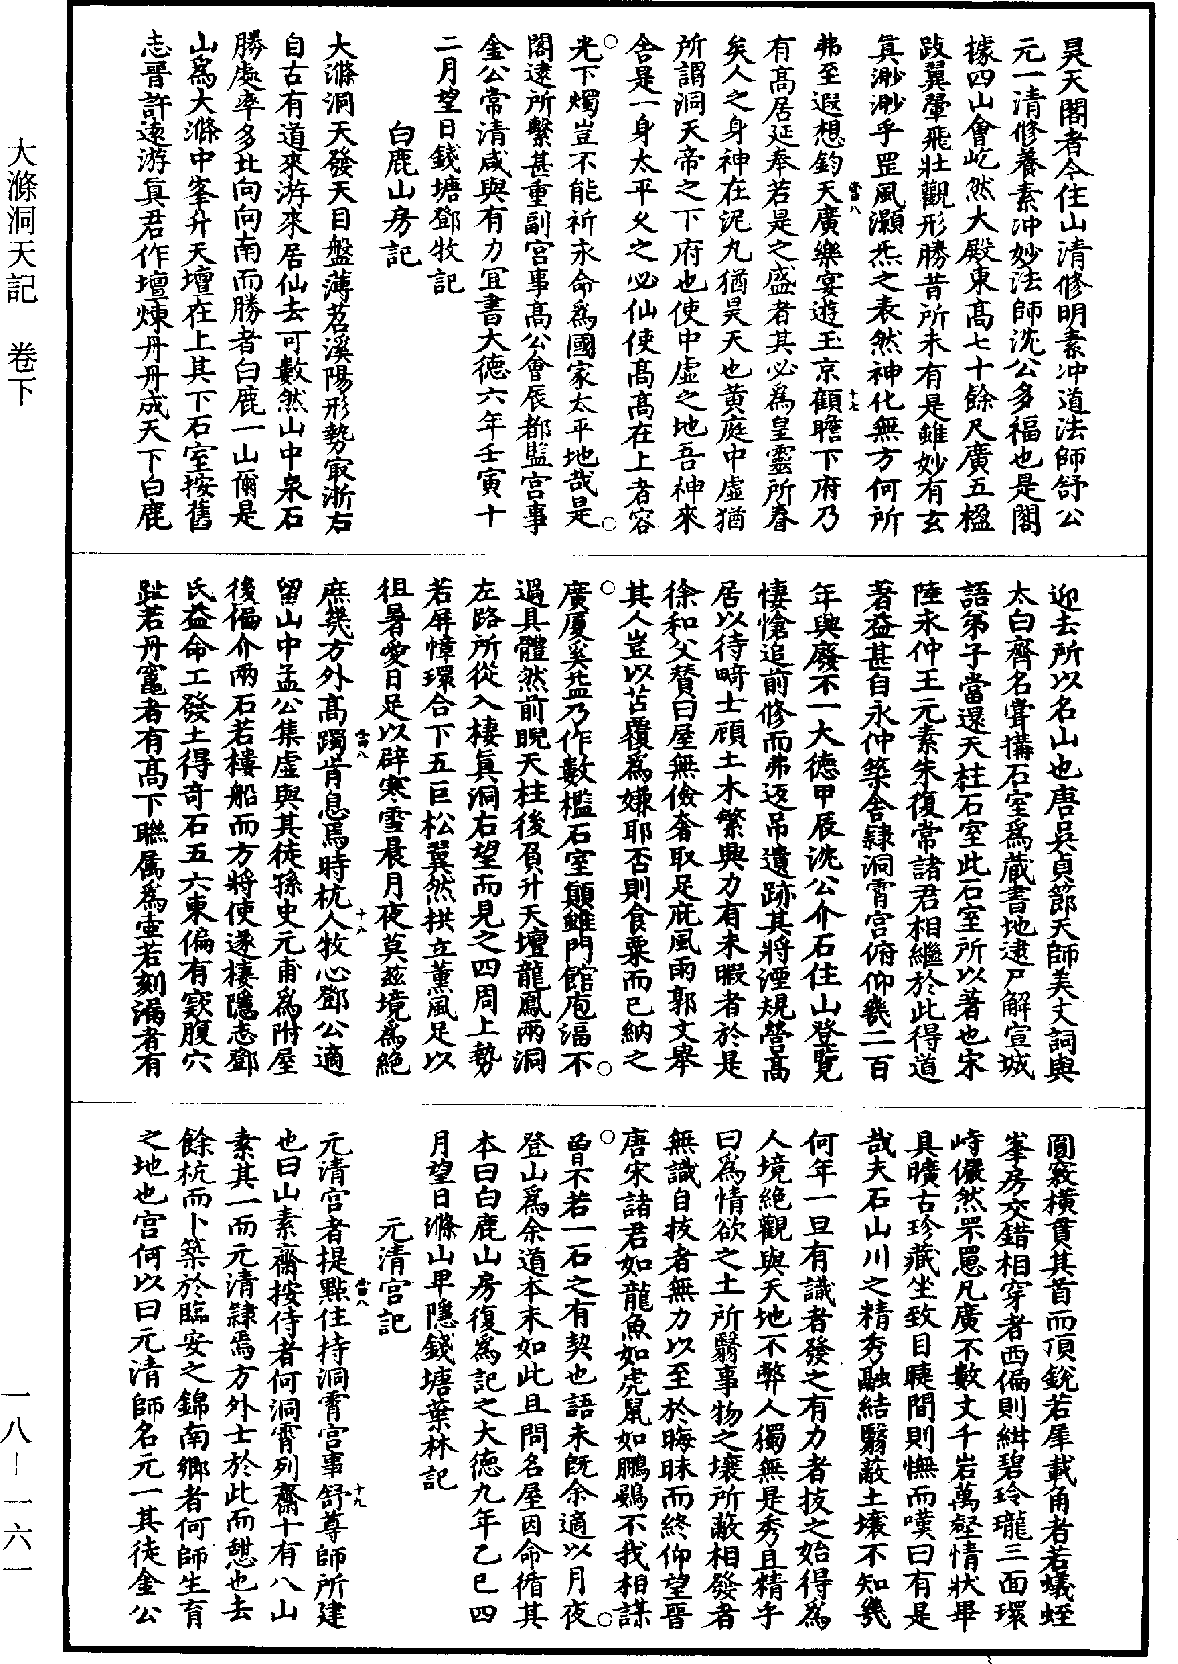 大滌洞天記　卷下
一八–一六一
昊天閣者今住山清修明素冲道法師舒公
元一清修養素冲妙法師沈公多福也是閣
據四山會屹然大殿東高七十餘尺廣五楹
跂翼翬飛壯觀形勝昔所未有是雖妙有玄
真渺渺乎罡風灝炁之表然神化無方何所
弗至遐想鈞天廣樂宴遊玉京顧瞻下府乃
當八
十七
有高居延奉若是之盛者其必為皇靈所眷
矣人之身神在泥丸猶昊天也黃庭中虛猶
所謂洞天帝之下府也使中虛之地吾神來
舍是一身太平乂之必仙使高高在上者容
光下燭豈不能祈永命為國家太平地哉是
閣逮所繫甚重副宮事高公會辰都監宮事
金公常清咸與有力冝書大德六年壬寅十
二月望日錢塘鄧牧記
白鹿山房記
大滌洞天發天目盤薄苕溪陽形勢冣浙右
自古有道來游來居仙去可數然山中泉石
勝處率多北向向南而勝者白鹿一山爾是
山為大滌中峯升天壇在上其下石室按舊
志晉許遠游真君作壇煉丹丹成天下白鹿
迎去所以名山也唐吳貞節天師美丈詞與
太白齊名甞搆石室為藏書地逮尸解宣城
語弟子當還天柱石室此石室所以著也宋
陸永仲王元素朱復常諸君相繼於此得道
著益甚自永仲築舍隸洞霄宮俯仰幾二百
年興廢不一大德甲辰沈公介石住山登覽
悽愴追前修而弗迈吊遺跡其將湮規營高
居以待畸士頋土木繁興力有未暇者於是
徐和父賛曰屋無儉奢取足庇風雨郭文舉
其人豈以苫覆為嫌耶否則食粟而已納之
廣廈奚益乃作數楹石室顛雖門館庖湢不
過具體然前睨天柱後負升天壇龍鳳兩洞
左路所從入棲真洞右望而見之四周上勢
若屏幛環合下五巨松翼然拱立薰風足以
徂暑愛日足以辟寒雪晨月夜莫兹境為絕
庶幾方外高躅肯息焉時杭人牧心鄧公適
當八
十八
留山中孟公集虛與其徒孫史元甫為附屋
後偏介兩石若樓船而方將使遂棲隱志鄧
氏益命工發土得奇石五六東偏有窽腹穴
趾若丹竈者有高下聮属為壷若刻漏者有
圓竅橫貫其首而頂銳若犀載角者若蟻蛭
峯房交錯相穿者西偏則紺碧玲瓏三面環
峙儼然罘罳凡廣不數丈千岩萬壑情狀畢
具曠古珍藏坐致目睫間則憮而嘆曰有是
哉夫石山川之精秀融結翳蔽土壤不知幾
何年一旦有識者發之有力者技之始得為
人境絕觀與天地不弊人獨無是秀且精乎
曰為情欲之土所翳事物之壤所蔽相發者
無識自技者無力以至於晦昧而終仰望晉
唐宋諸君如龍魚如虎鼠如鵬鷃不我相謀
曾不若一石之有契也語未旣余適以月夜
登山為余道本末如此且問名屋因命循其
本曰白鹿山房復為記之大德九年乙巳四
月望日滌山甲隱錢塘葉林記
元清宮記
元清宮者提點住持洞霄宮事舒尊師所建
當八
十九
也曰山素齋按侍者何洞霄列齋十有八山
素其一而元清隸焉方外士於此而憇也去
餘杭而卜築於臨安之錦南鄉者何師生育
之地也宮何以曰元清師名元一其徒金公